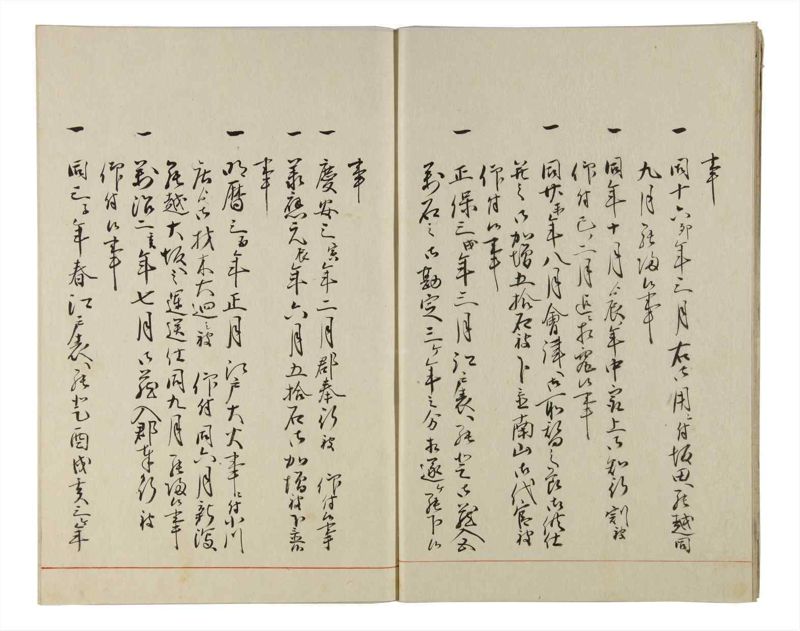 事
一 同十六卯年三月右御用ニ付坂田罷越同
九月罷帰候事
一 同年十月ゟ辰年中最上御知行割被
仰付巳ノ二月迄相究候事
一 同廿未年八月會津御所替之節御供仕
御加増五拾石被下置南山御代官被
仰付候事
一 正保三年三月江戸表へ罷登御蔵入五
万石之御勘定三ヶ年之分相遂ケ罷下候
事
一 慶安三寅年二月郡奉行被 仰付候事
一 承應元辰年六月五拾石御加増被下置候
事
一 明暦三酉年正月江戸大火事ニ付小川
ゟ御材木大廻ニ被 仰付同六月新潟
罷越大坂之運送仕同九月罷帰候事
一 万治二亥年七月御蔵入郡奉行被
仰付候事
一 同三子年春江戸表へ罷登酉戌亥三ヶ年